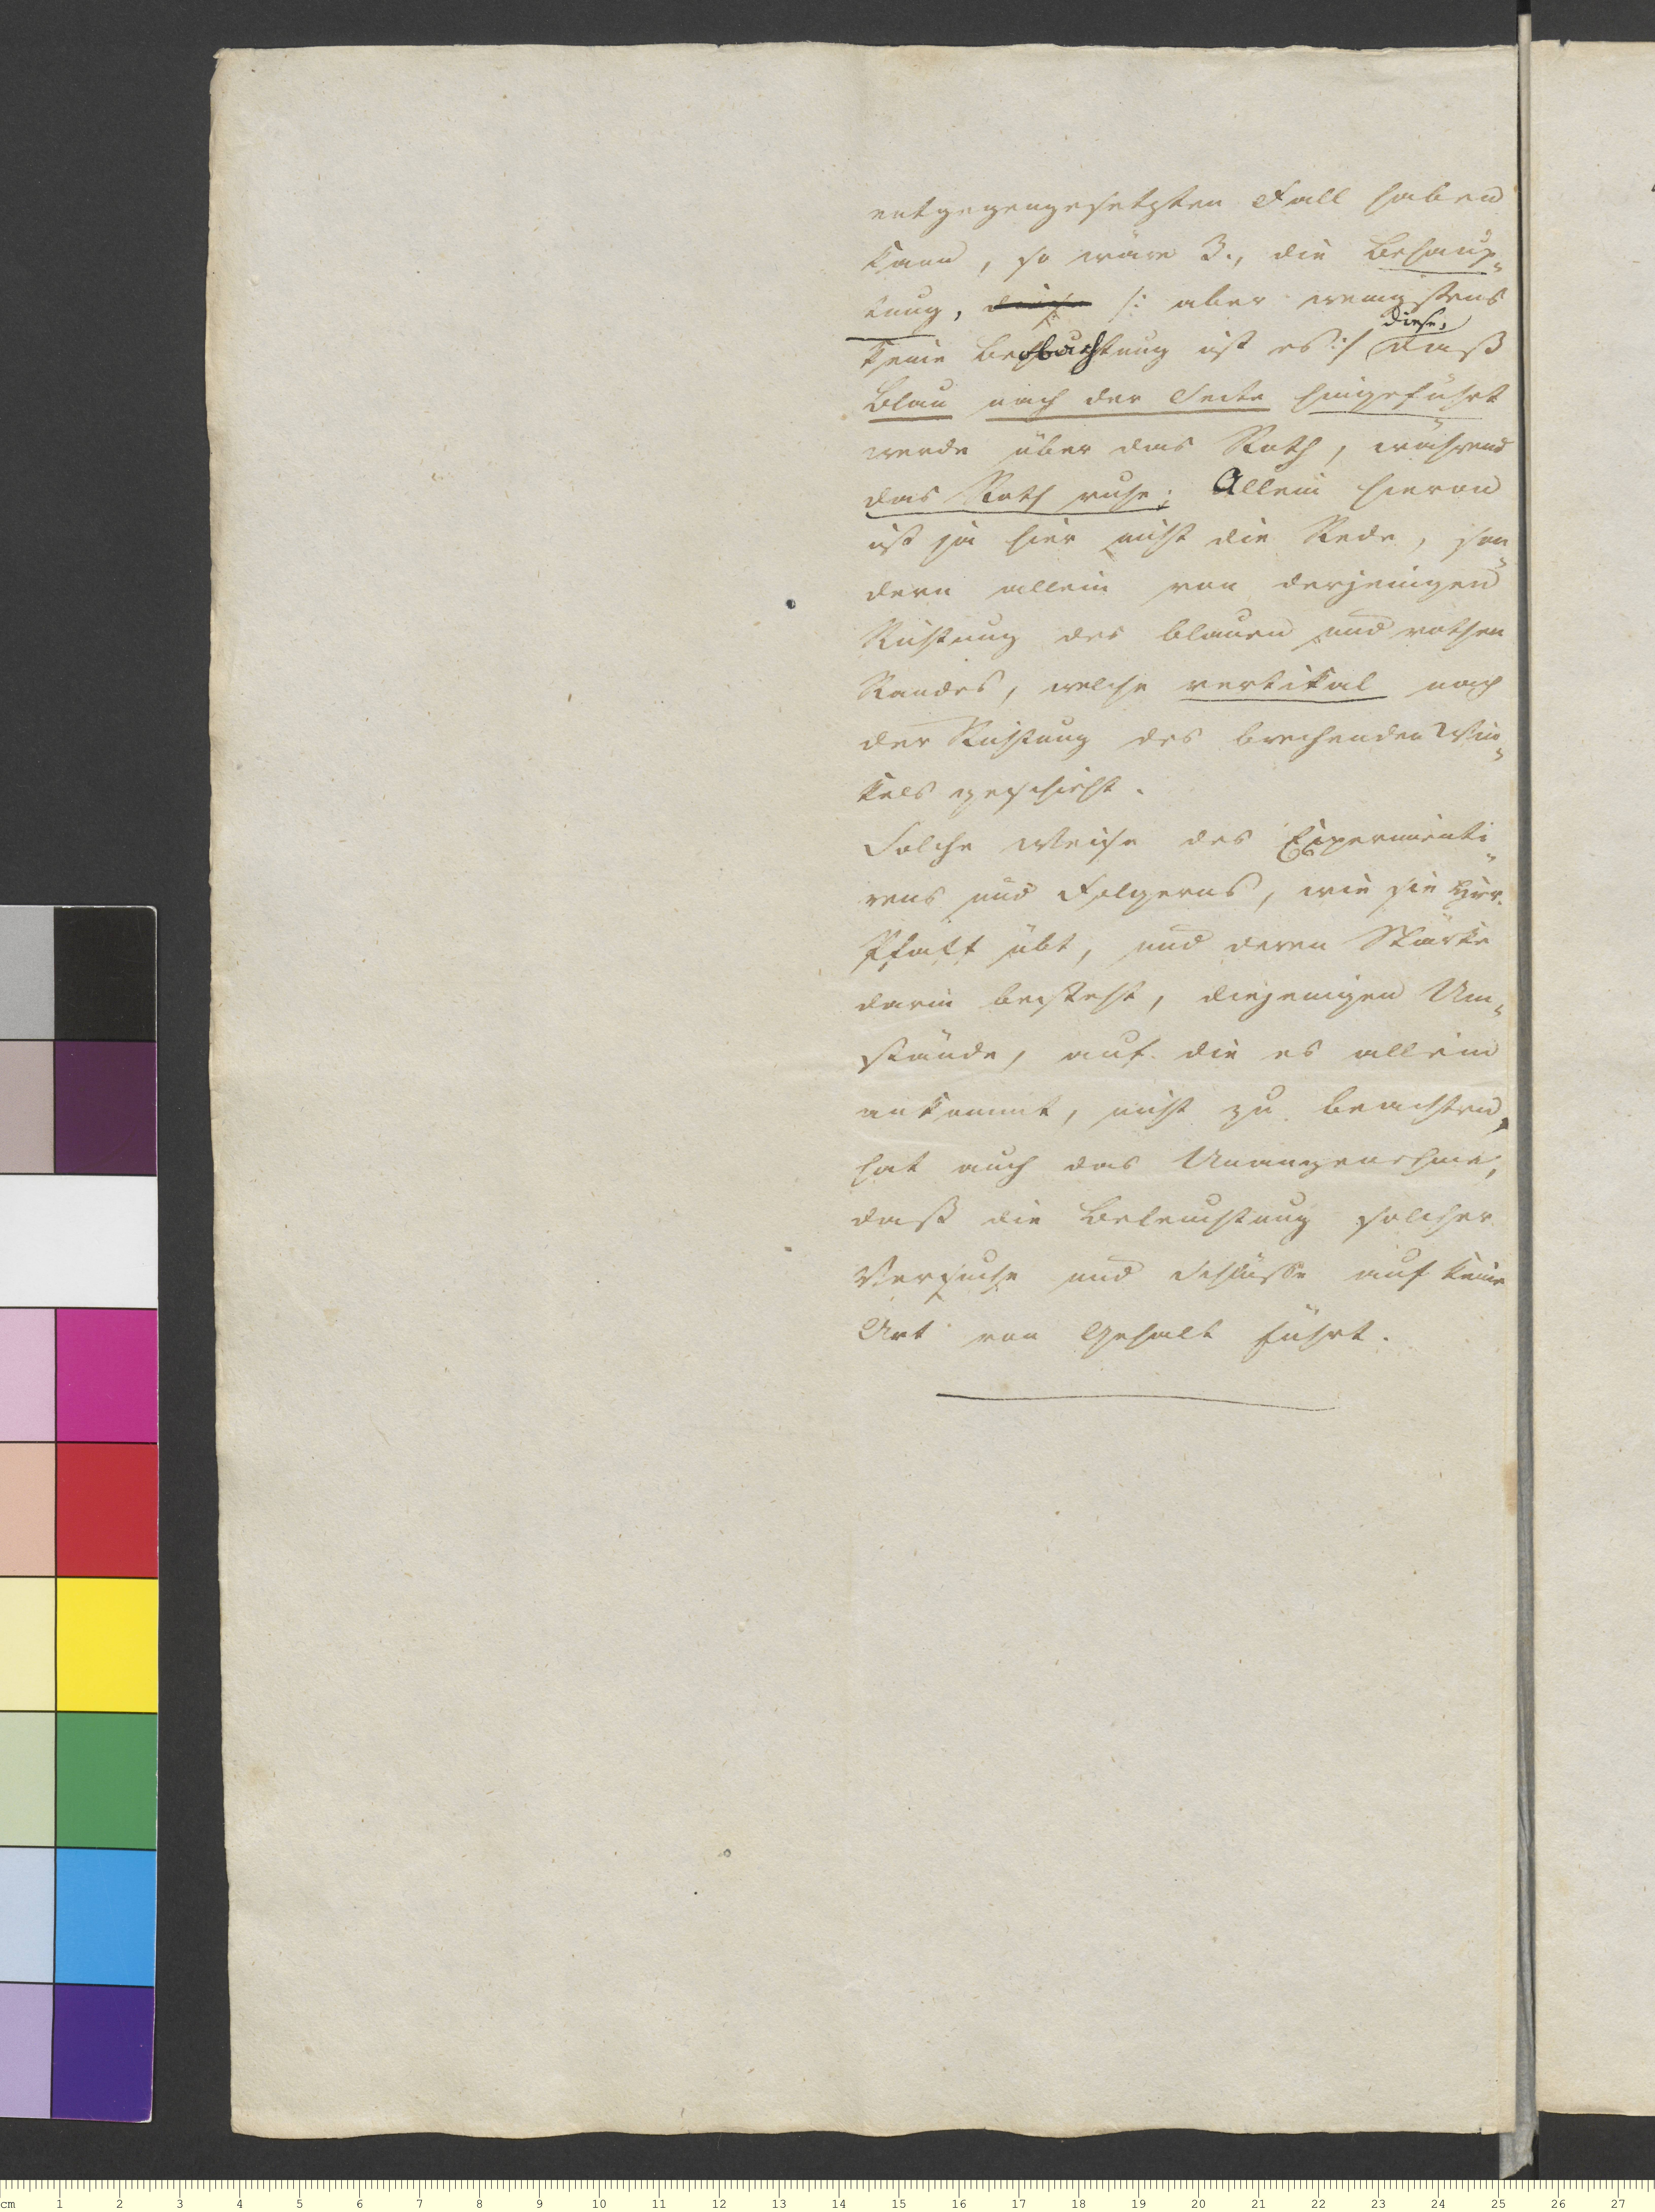 entgegengesetzten Fall haben
kann, so wäre 3., die Behaup-
tung, diese /: aber wenigstens
diese,
keine Beobachtung ist es :/ daß
Blau nach der Seite hingeführt
werde über das Roth, während
das Roth ruhe; Allein hievon
ist ja hier nicht die Rede, son-
dern allein von derjenigen
Richtung des blauen und rothen
Randes, welche vertikal nach
der Richtung des brechenden Win-
kels geschieht.
Solche Weise des Experimenti-
rens und Folgerns, wie sie Hr.
Pfaff übt, und deren Stärke
darin besteht, diejenigen Um-
stände, auf die es allein
ankommt, nicht zu beachten,
hat auch das Unangenehme,
daß die Beleuchtung solcher
Versuche und Schlüsse auf keine
Art von Gehalt führt.